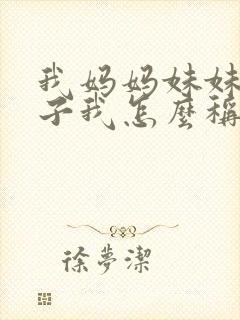 我妈妈妹妹
子我怎麼稱
徐夢潔